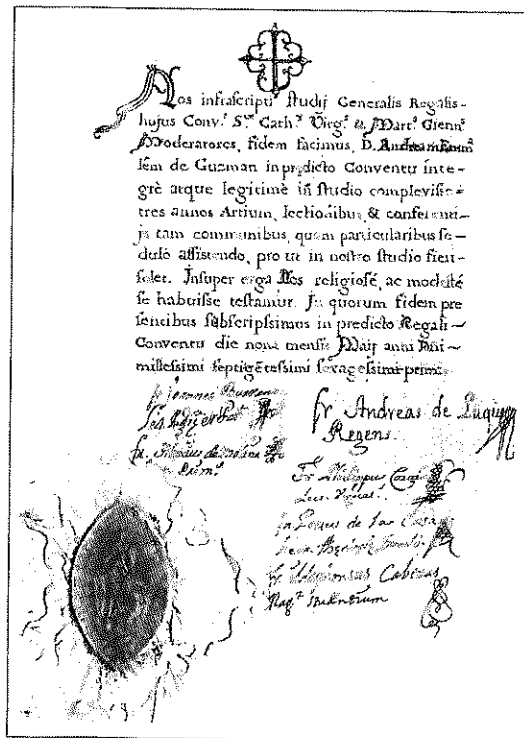 Nos infrascripti studij Generalis Regalis-
hujus Conv.ˢ S.ᵗᵃᵉ Cath.ᵉ Virg.ˢ & Mart.ˢ Gienn.ˢ
Moderatores, fidem facimus, D.
lem de Guzman in predicto Conventu inte-
grè atque legitimè in studio complevisse-
tres annos Artium, lectionibus, & conferenti-
js tam communibus, quam particularibus se-
dulò assistendo, pro ut in nostro studio fieri-
solet. Insuper erga Nos religiosé, ac modesté
se habuisse testamur. In quorum fidem pre
sentibus subscripsimus in predicto Regali-
Conventu die nona mensis Maij anni Dñi-
millessimi septigẽtessimi sexagessimi primi.
fr. Joannes
fr. Andreas de Luque
Regens.
fr.
Fr. Philippus
fr. de las
fr. Ildephonsus Cabezas
Mag.ʳ Studentium